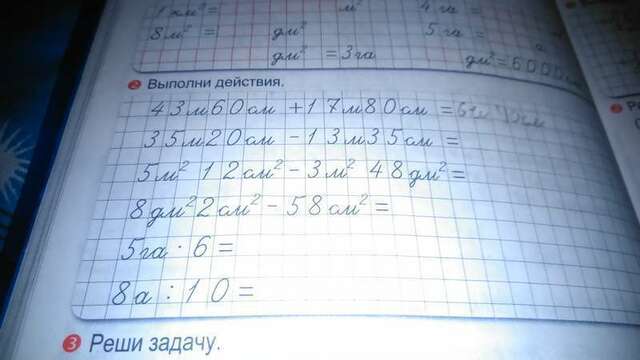 м² 4 га =
8 м² = дм² 5 га = а
дм² = 3 га дм² = 6000
2 Выполни действия.
43 м 60 см + 17 м 80 см =
35 м 20 см - 13 м 35 см =
5 м² 12 см² - 3 м² 48 дм² =
8 дм² 2 см² - 58 см² =
5 га · 6 =
8 а : 10 =
3 Реши задачу.